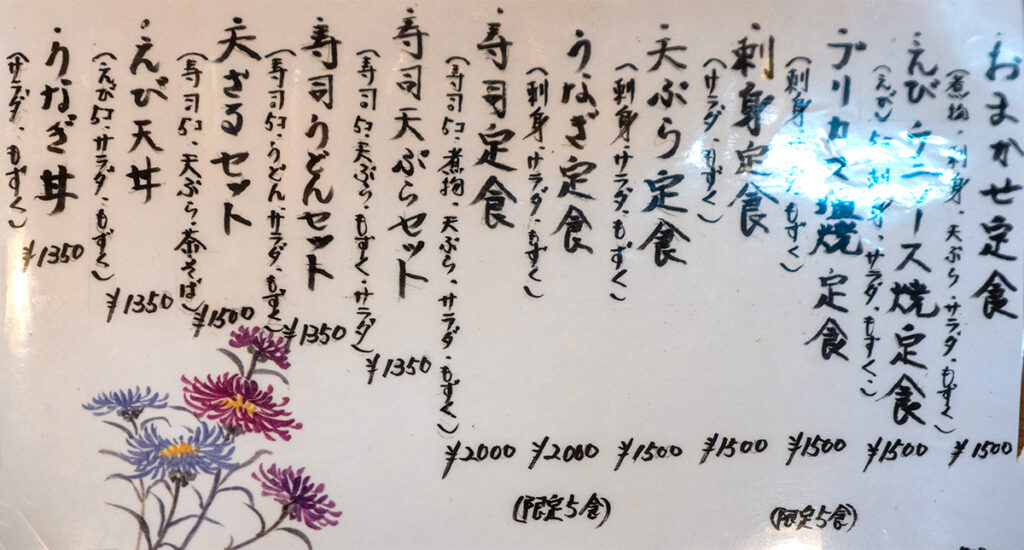 おまかせ定食
(煮物・刺身・天ぷら・サラダ・もずく)
¥1500
えびマニース焼定食
(えび5コ・刺身・サラダ・もずく)
¥1500
ブリカマ塩焼定食
(刺身・サラダ・もずく)
¥1500
(限定5食)
刺身定食
(サラダ・もずく)
¥1500
天ぷら定食
(刺身・サラダ・もずく)
¥1500
うなぎ定食
(刺身・サラダ・もずく)
¥2000
(限定5食)
寿司定食
(寿司5コ・煮物・天ぷら・サラダ・もずく)
¥2000
寿司天ぷらセット
(寿司5コ・天ぷら・もずく・サラダ)
¥1350
寿司うどんセット
(寿司5コ・うどん・サラダ・もずく)
¥1350
天ざるセット
(寿司5コ・天ぷら・茶そば)
¥1500
えび天丼
(えび5コ・サラダ・もずく)
¥1350
うなぎ丼
(サラダ・もずく)
¥1350